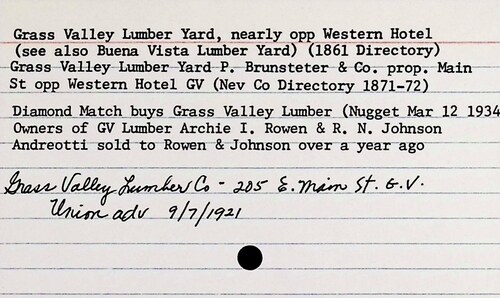 Grass Valley Lumber Yard, nearly opp Western Hotel
(see also Buena Vista Lumber Yard) (1861 Directory)
Grass Valley Lumber Yard P. Brunsteter & Co. prop. Main
St opp Western Hotel GV (Nev Co Directory 1871-72)
Diamond Match buys Grass Valley Lumber (Nugget Mar 12 1934
Owners of GV Lumber Archie I. Rowen & R. N. Johnson
Andreotti sold to Rowen & Johnson over a year ago
Grass Valley Lumber Co - 205 E. Main St. G.V.
Union adv 9/7/1921